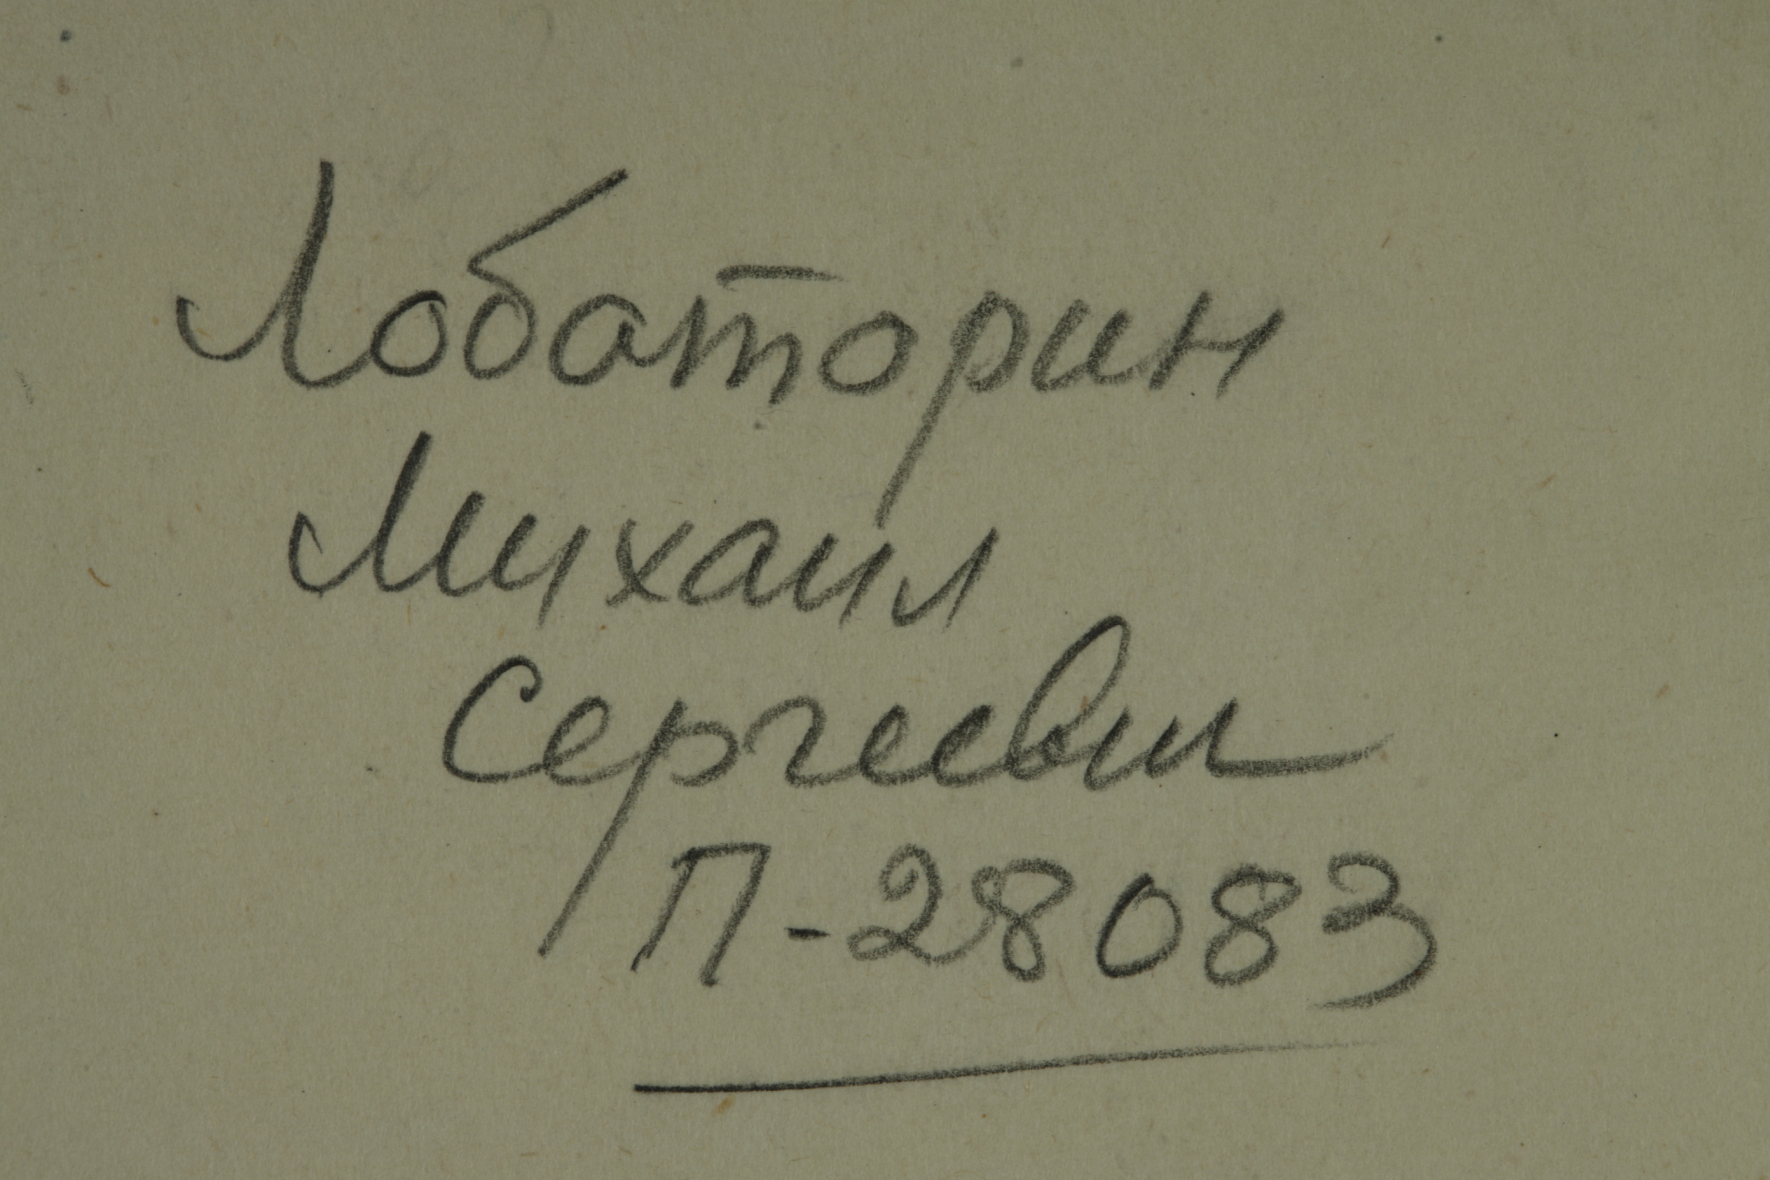 Лобаторин
Михаил
Сергеевич
П-28083